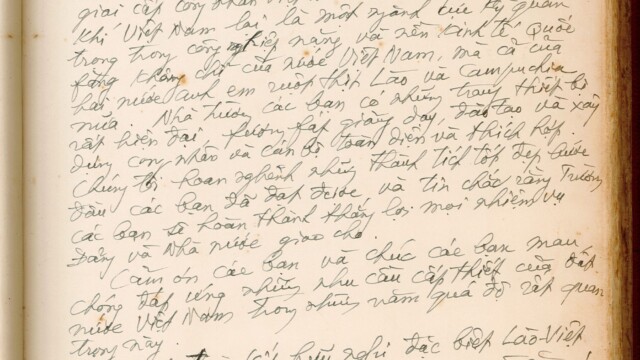 giai cấp công nhân
khí Việt Nam lại là một ngành cực kỳ quan
trọng trong công nghiệp nặng và nền kinh tế Quốc
phòng không chỉ của nước Việt Nam, mà cả của
hai nước anh em ruột thịt Lào và Campuchia
nữa. Nhà trường các bạn có những trang thiết bị
rất hiện đại phương pháp giảng dạy, đào tạo và xây
dựng công nhân và cán bộ toàn diện và thích hợp.
Chúng tôi hoan nghênh những thành tích tốt đẹp bước
đầu các bạn đã đạt được và tin chắc rằng Trường
các bạn sẽ hoàn thành thắng lợi mọi nhiệm vụ
Đảng và Nhà nước giao cho.
Cảm ơn các bạn và chúc các bạn mau
chóng đáp ứng những nhu cầu cấp thiết của đất
nước Việt Nam trong những năm quá độ rất quan
trọng này.
hữu nghị đặc biệt Lào-Việt